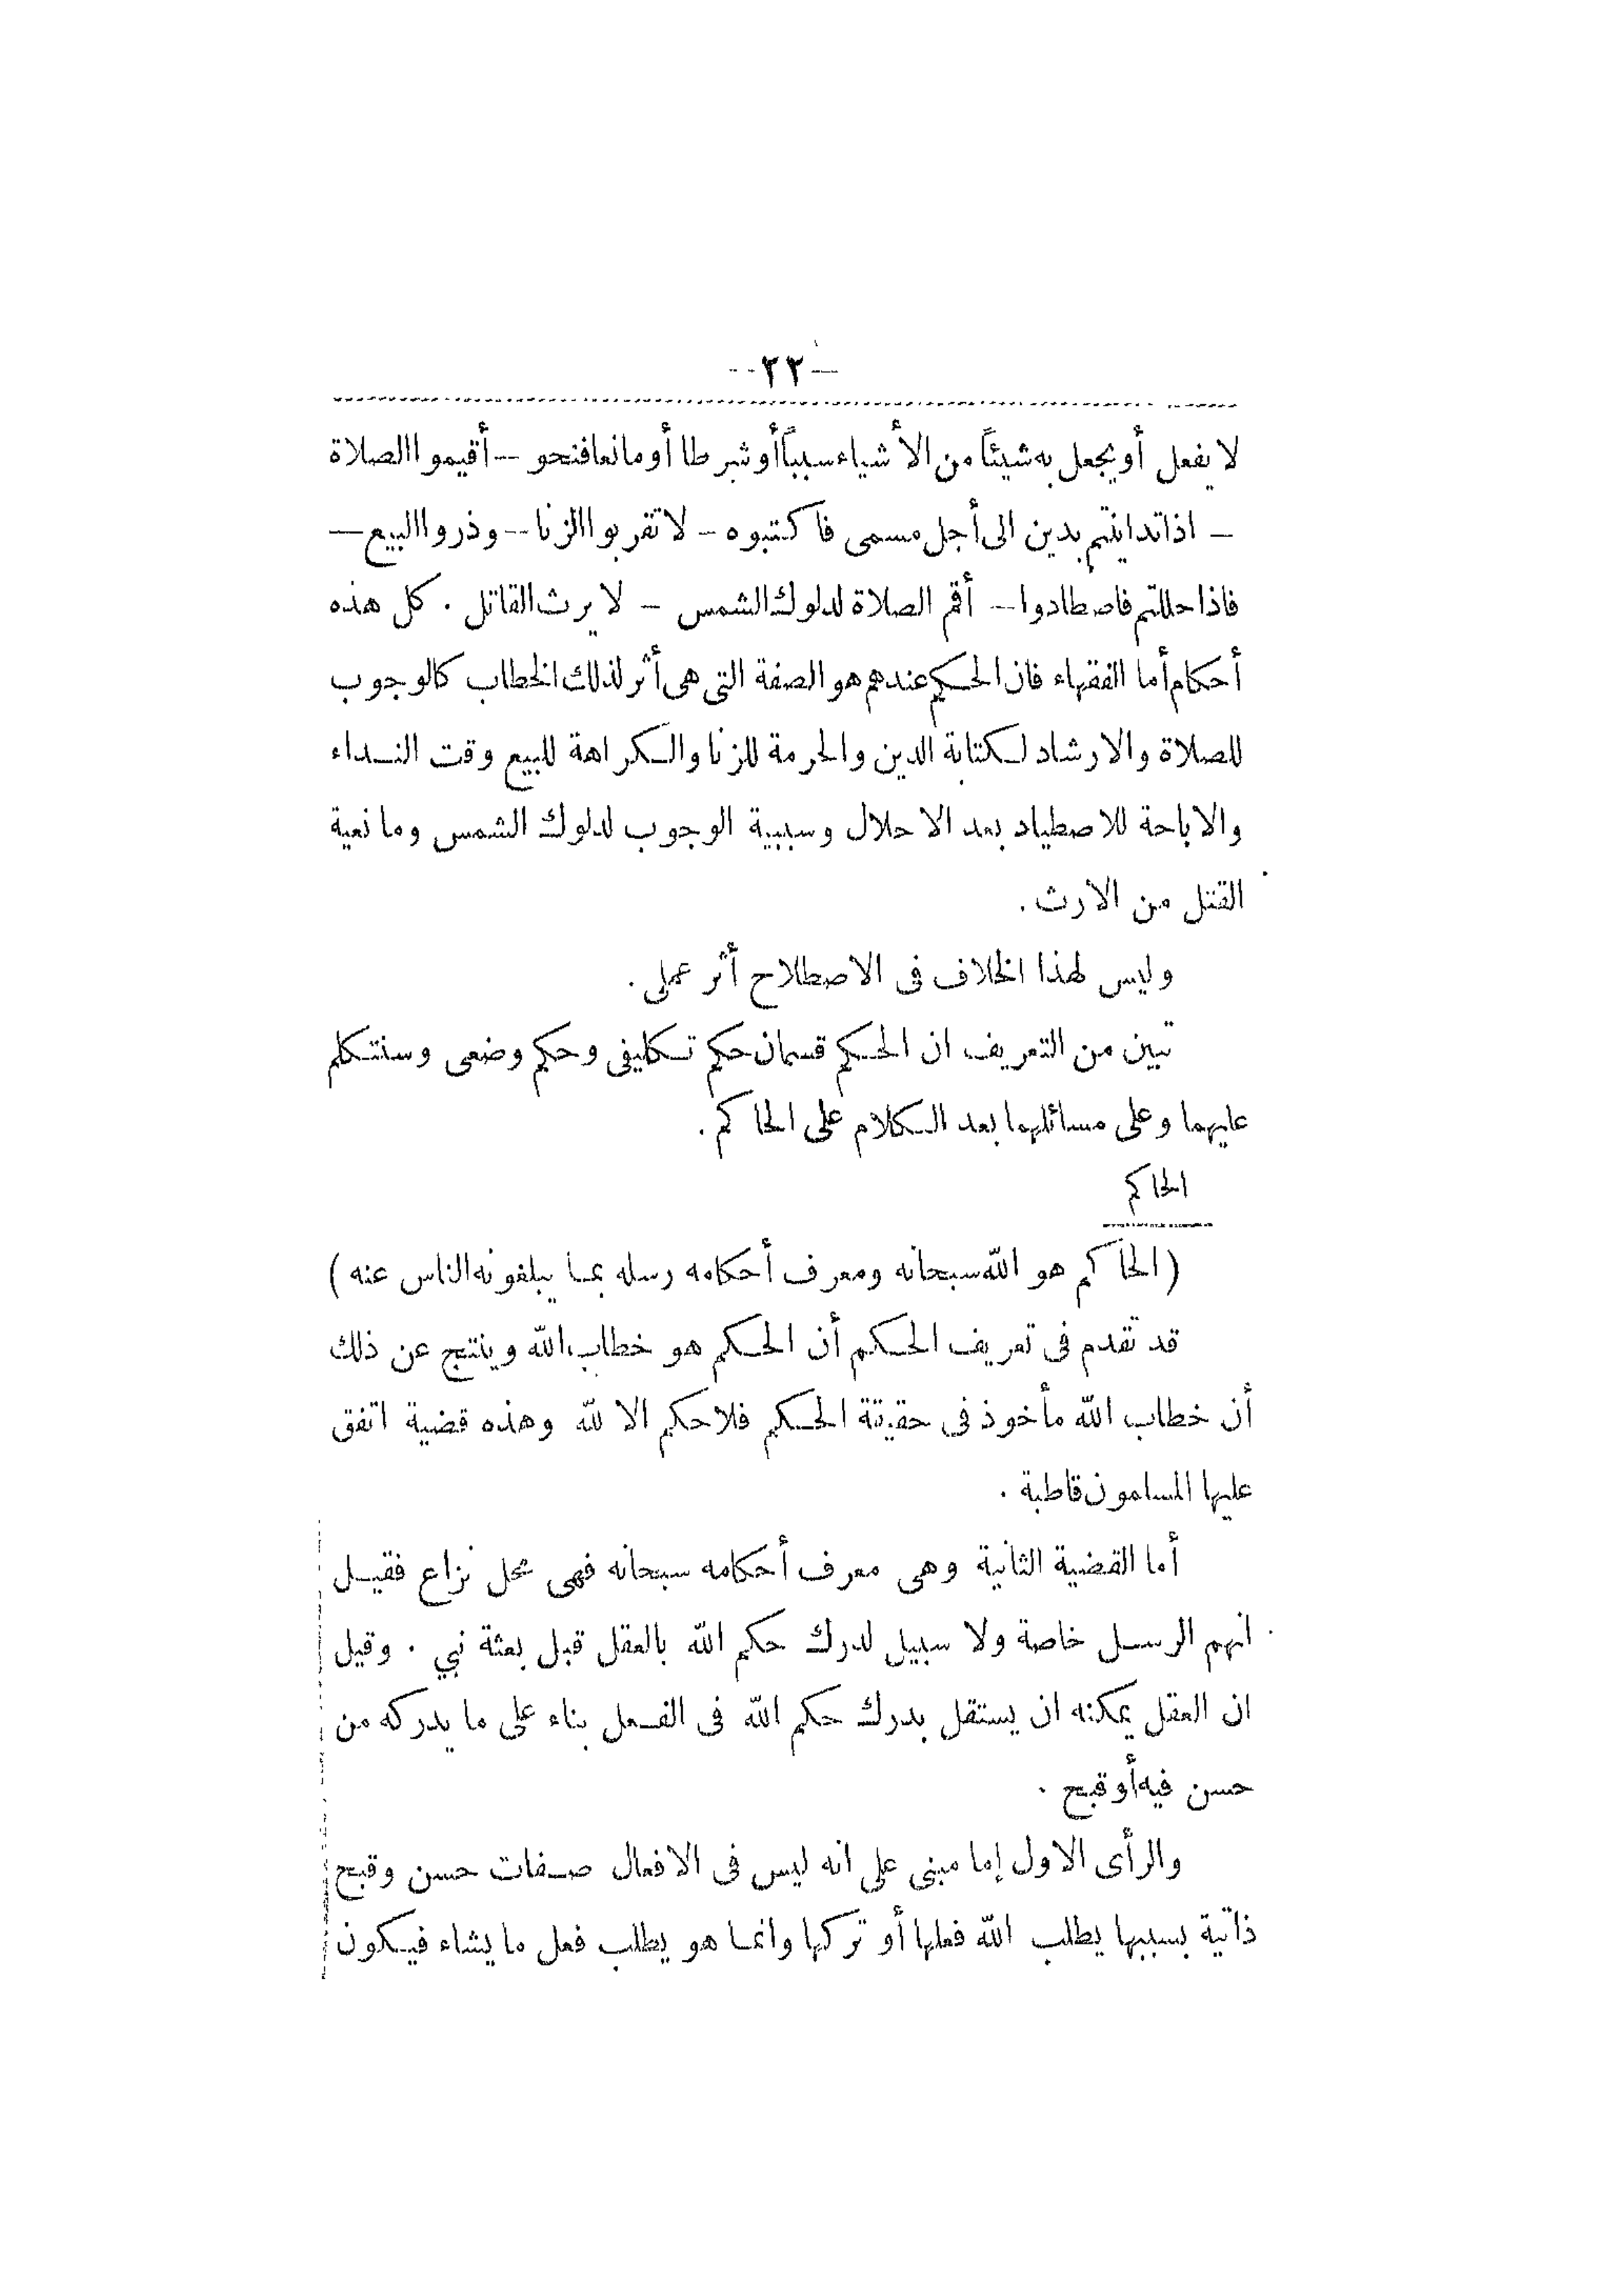 — ٢٢ —
لا يفعل أو يجعل به شيئاً من الأشياء سبباً أو شرطا أو مانعا فنحو — أقيموا الصلاة
— اذا تداينتم بدين الى أجل مسمى فاكتبوه — لا تقربوا الزنا — وذروا البيع —
فاذا حللتم فاصطادوا — أقم الصلاة لدلوك الشمس — لا يرث القاتل . كل هذه
أحكام أما الفقهاء فان الحكم عندهم هو الصفة التى هى أثر لذلك الخطاب كالوجوب
للصلاة والارشاد لكتابة الدين والحرمة للزنا والكراهة للبيع وقت النداء
والاباحة للاصطياد بعد الاحلال وسببية الوجوب لدلوك الشمس ومانعية
القتل من الارث .
وليس لهذا الخلاف فى الاصطلاح أثر عملى .
تبين من التعريف ان الحكم قسمان حكم تكليفى وحكم وضعى وسنتكلم
عليهما وعلى مسائلهما بعد الكلام على الحاكم .
الحاكم
( الحاكم هو الله سبحانه ومعرف أحكامه رسله بما يبلغونه الناس عنه )
قد تقدم فى تعريف الحكم أن الحكم هو خطاب الله وينتج عن ذلك
أن خطاب الله مأخوذ فى حقيقة الحكم فلا حكم الا لله وهذه قضية اتفق
عليها المسلمون قاطبة .
أما القضية الثانية وهى معرف أحكامه سبحانه فهى محل نزاع فقيل
انهم الرسل خاصة ولا سبيل لدرك حكم الله بالعقل قبل بعثة نبي . وقيل
ان العقل يمكنه ان يستقل بدرك حكم الله فى الفعل بناء على ما يدركه من
حسن فيه أو قبح .
والرأى الاول إما مبنى على انه ليس فى الافعال صفات حسن وقبح
ذاتية بسببها يطلب الله فعلها أو تركها وانما هو يطلب فعل ما يشاء فيكون